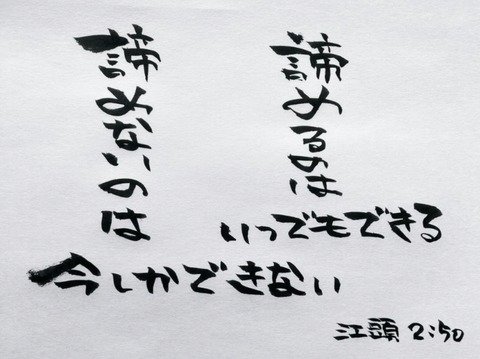 諦めるのは
いつでもできる
諦めないのは
今しかできない
江頭 2:50